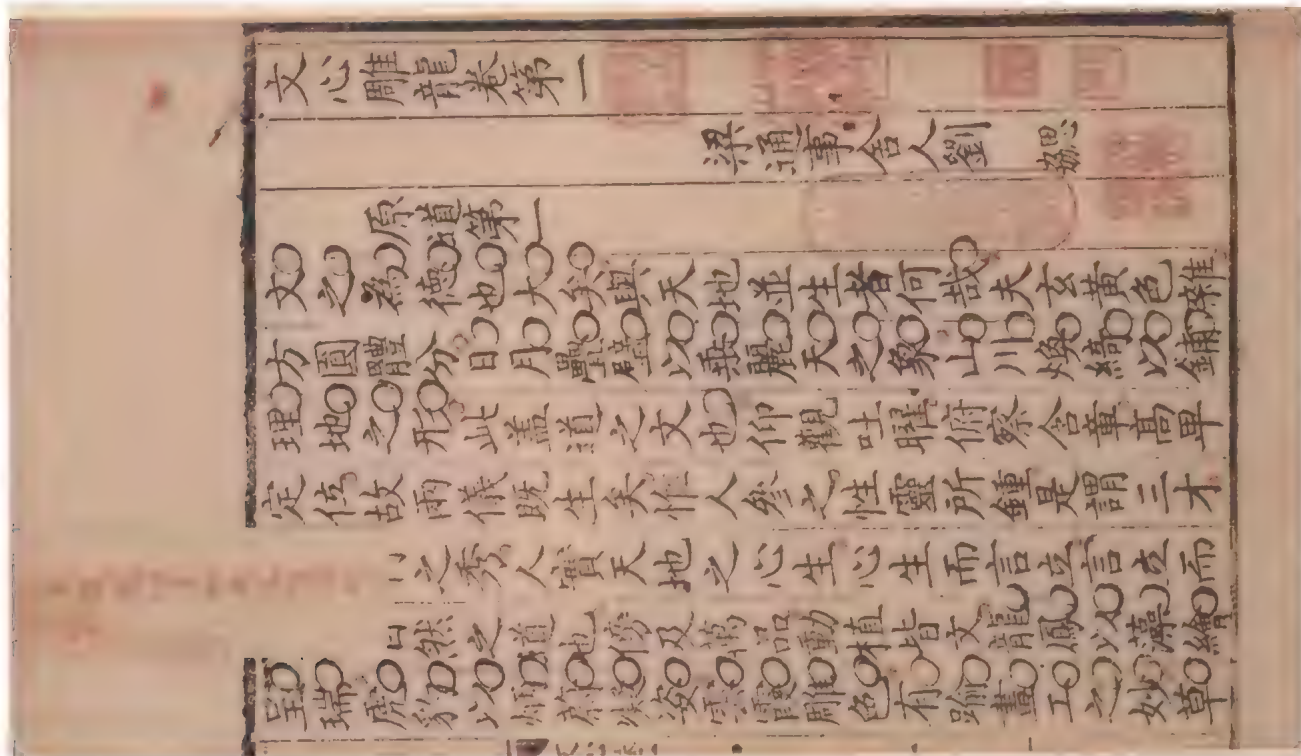 文心雕龍卷第一
梁通事舍人劉 勰
原道第一
文之為德也大矣與天地並生者何哉夫玄黃色雜
方圓體分日月疊璧以垂麗天之象山川煥綺以鋪
理地之形此盖道之文也仰觀吐曜俯察含章高卑
定位故兩儀既生矣惟人參之性靈所鍾是謂三才
之秀人實天地之心生心生而言立言立而
然之道也傍及萬品動植皆文龍鳳以藻繪
呈瑞虎豹以炳蔚凝姿雲霞雕色有踰畫工之妙草